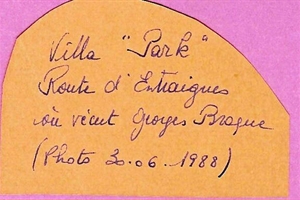 Villa "Park"
Route d'Entraigues
où vécut Georges Braque
(Photo 30.06.1988)